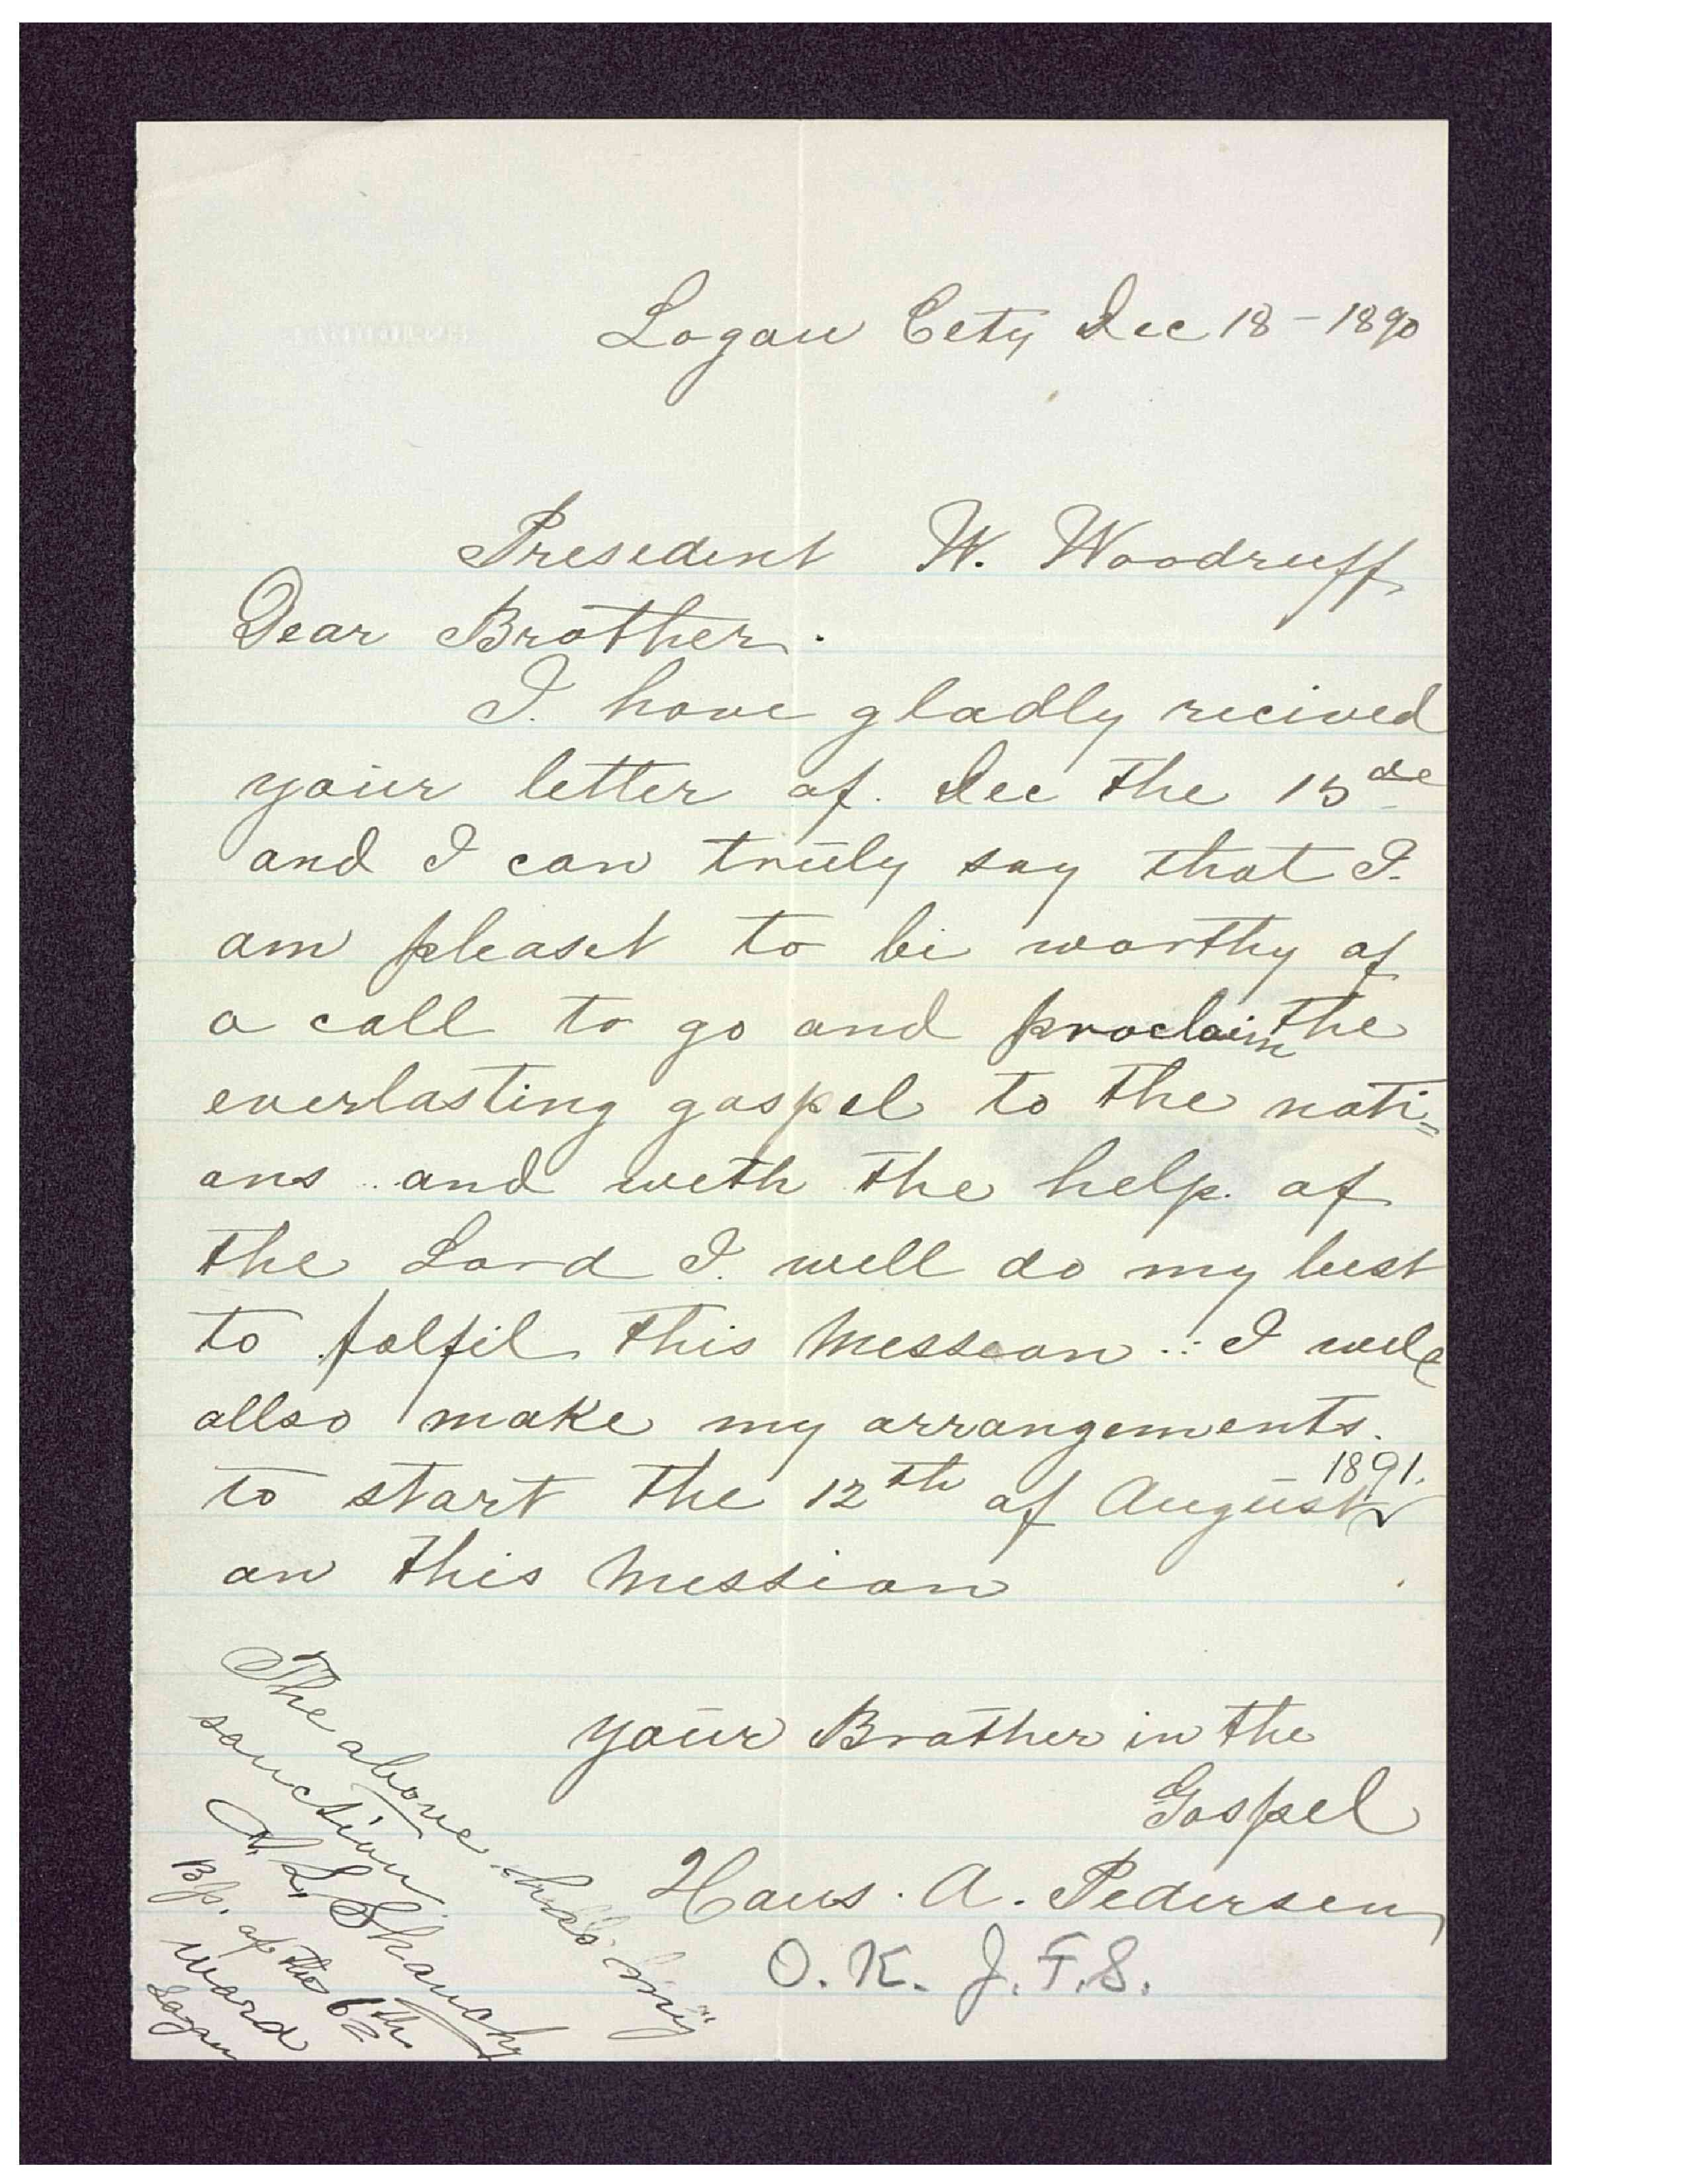 Logan Cety Dec 18 - 1890
Presedent W. Woodruff
Dear Brother.
I. have gladly recived
your letter of. Dec the 15de
and I can truly say that I.
am pleaset to be worthy of
a call to go and proclaim the
everlasting gospel to the nati=
ons and weth the help. of
the Lord I. well do my best
to folfil this Messeon .: I well
allso make my arrangements.
to start the 12th of August 1891.
on this Mession
your Brother in the
Gospel
Hans. A. Pedersen
O.K. J.F.S.
The above has my
sanction
L. Skanchy
Bp. of the 6th
ward
Logan